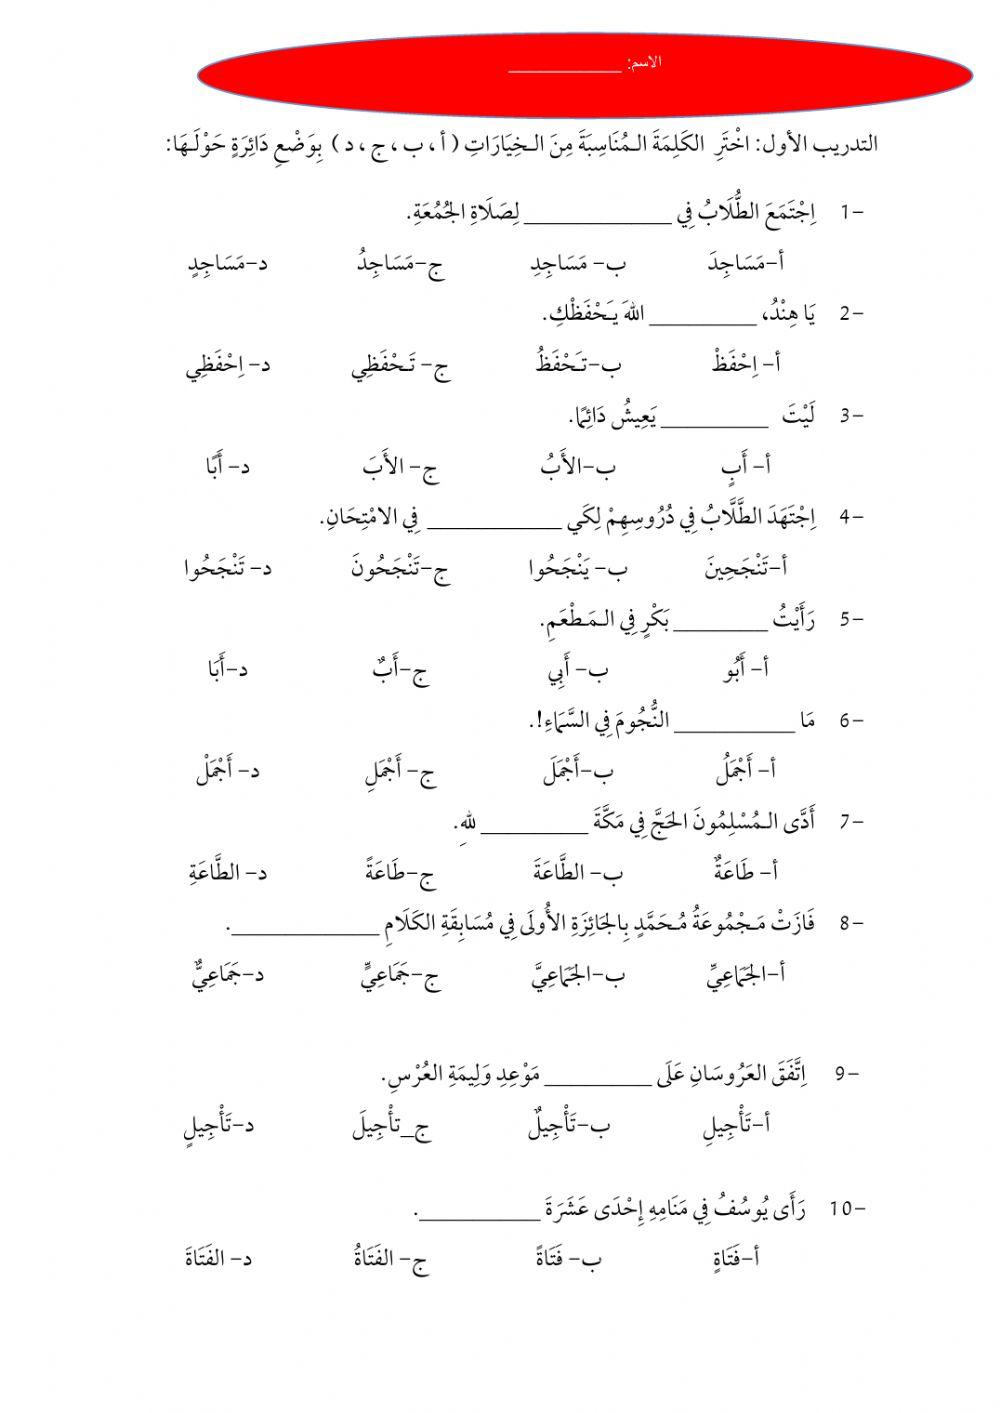 الاسم: ______________
التدريب الأول: اخْتَرِ الكَلِمَةَ الـمُنَاسِبَةَ مِنَ الـخِيَارَاتِ ( أ ، ب ، ج ، د ) بِوَضْعِ دَائِرَةٍ حَوْلَـهَا:
1- اِجْتَمَعَ الطُّلَابُ فِي ______________ لِصَلَاةِ الجُمُعَةِ.
أ-مَسَاجِدَ ب- مَسَاجِدِ ج-مَسَاجِدُ د-مَسَاجِدٍ
2- يَا هِنْدُ، __________ اللهَ يَـحْفَظْكِ.
أ- اِحْفَظْ ب-تَـحْفَظُ ج- تَـحْفَظِي د- اِحْفَظِي
3- لَيْتَ __________ يَعِيشُ دَائِمًا.
أ- أَبٍ ب-الأَبُ ج- الأَبَ د- أَبًا
4- اِجْتَهَدَ الطَّلَّابُ فِي دُرُوسِهِمْ لِكَي ____________ فِي الامْتِحَانِ.
أ-تَنْجَحِينَ ب- يَنْجَحُوا ج-تَنْجَحُونَ د- تَنْجَحُوا
5- رَأَيْتُ _________ بَكْرٍ فِي الـمَـطْعَمِ.
أ- أَبُو ب- أَبِي ج-أَبٌ د-أَبَا
6- مَا ___________ النُّجُومَ فِي السَّمَاءِ!.
أ- أَجْمَلُ ب-أَجْمَلَ ج- أَجْمَلِ د- أَجْمَلْ
7- أَدَّى الـمُسْلِمُونَ الحَجَّ فِي مَكَّةَ __________ للهِ.
أ- طَاعَةٌ ب- الطَّاعَةَ ج-طَاعَةً د- الطَّاعَةِ
8- فَازَتْ مَـجْمُوعَةُ مُـحَمَّدٍ بِالجَائِزَةِ الأُولَى فِي مُسَابِقَةِ الكَلَامِ ______________.
أ-الجَمَاعِيِّ ب-الجَمَاعِيَّ ج-جَمَاعِيٍّ د-جَمَاعِيٌّ
9- اِتَّفَقَ العَرُوسَانِ عَلَى __________ مَوْعِدِ وَلِيمَةِ العُرْسِ.
أ-تَأْجِيلِ ب-تَأْجِيلٌ ج_تأْجِيلَ د-تَأْجِيلٍ
10- رَأَى يُوسُفُ فِي مَنَامِهِ إِحْدَى عَشَرَةَ ___________.
أ-فَتَاةٍ ب- فَتَاةً ج- الفَتَاةُ د- الفَتَاةَ